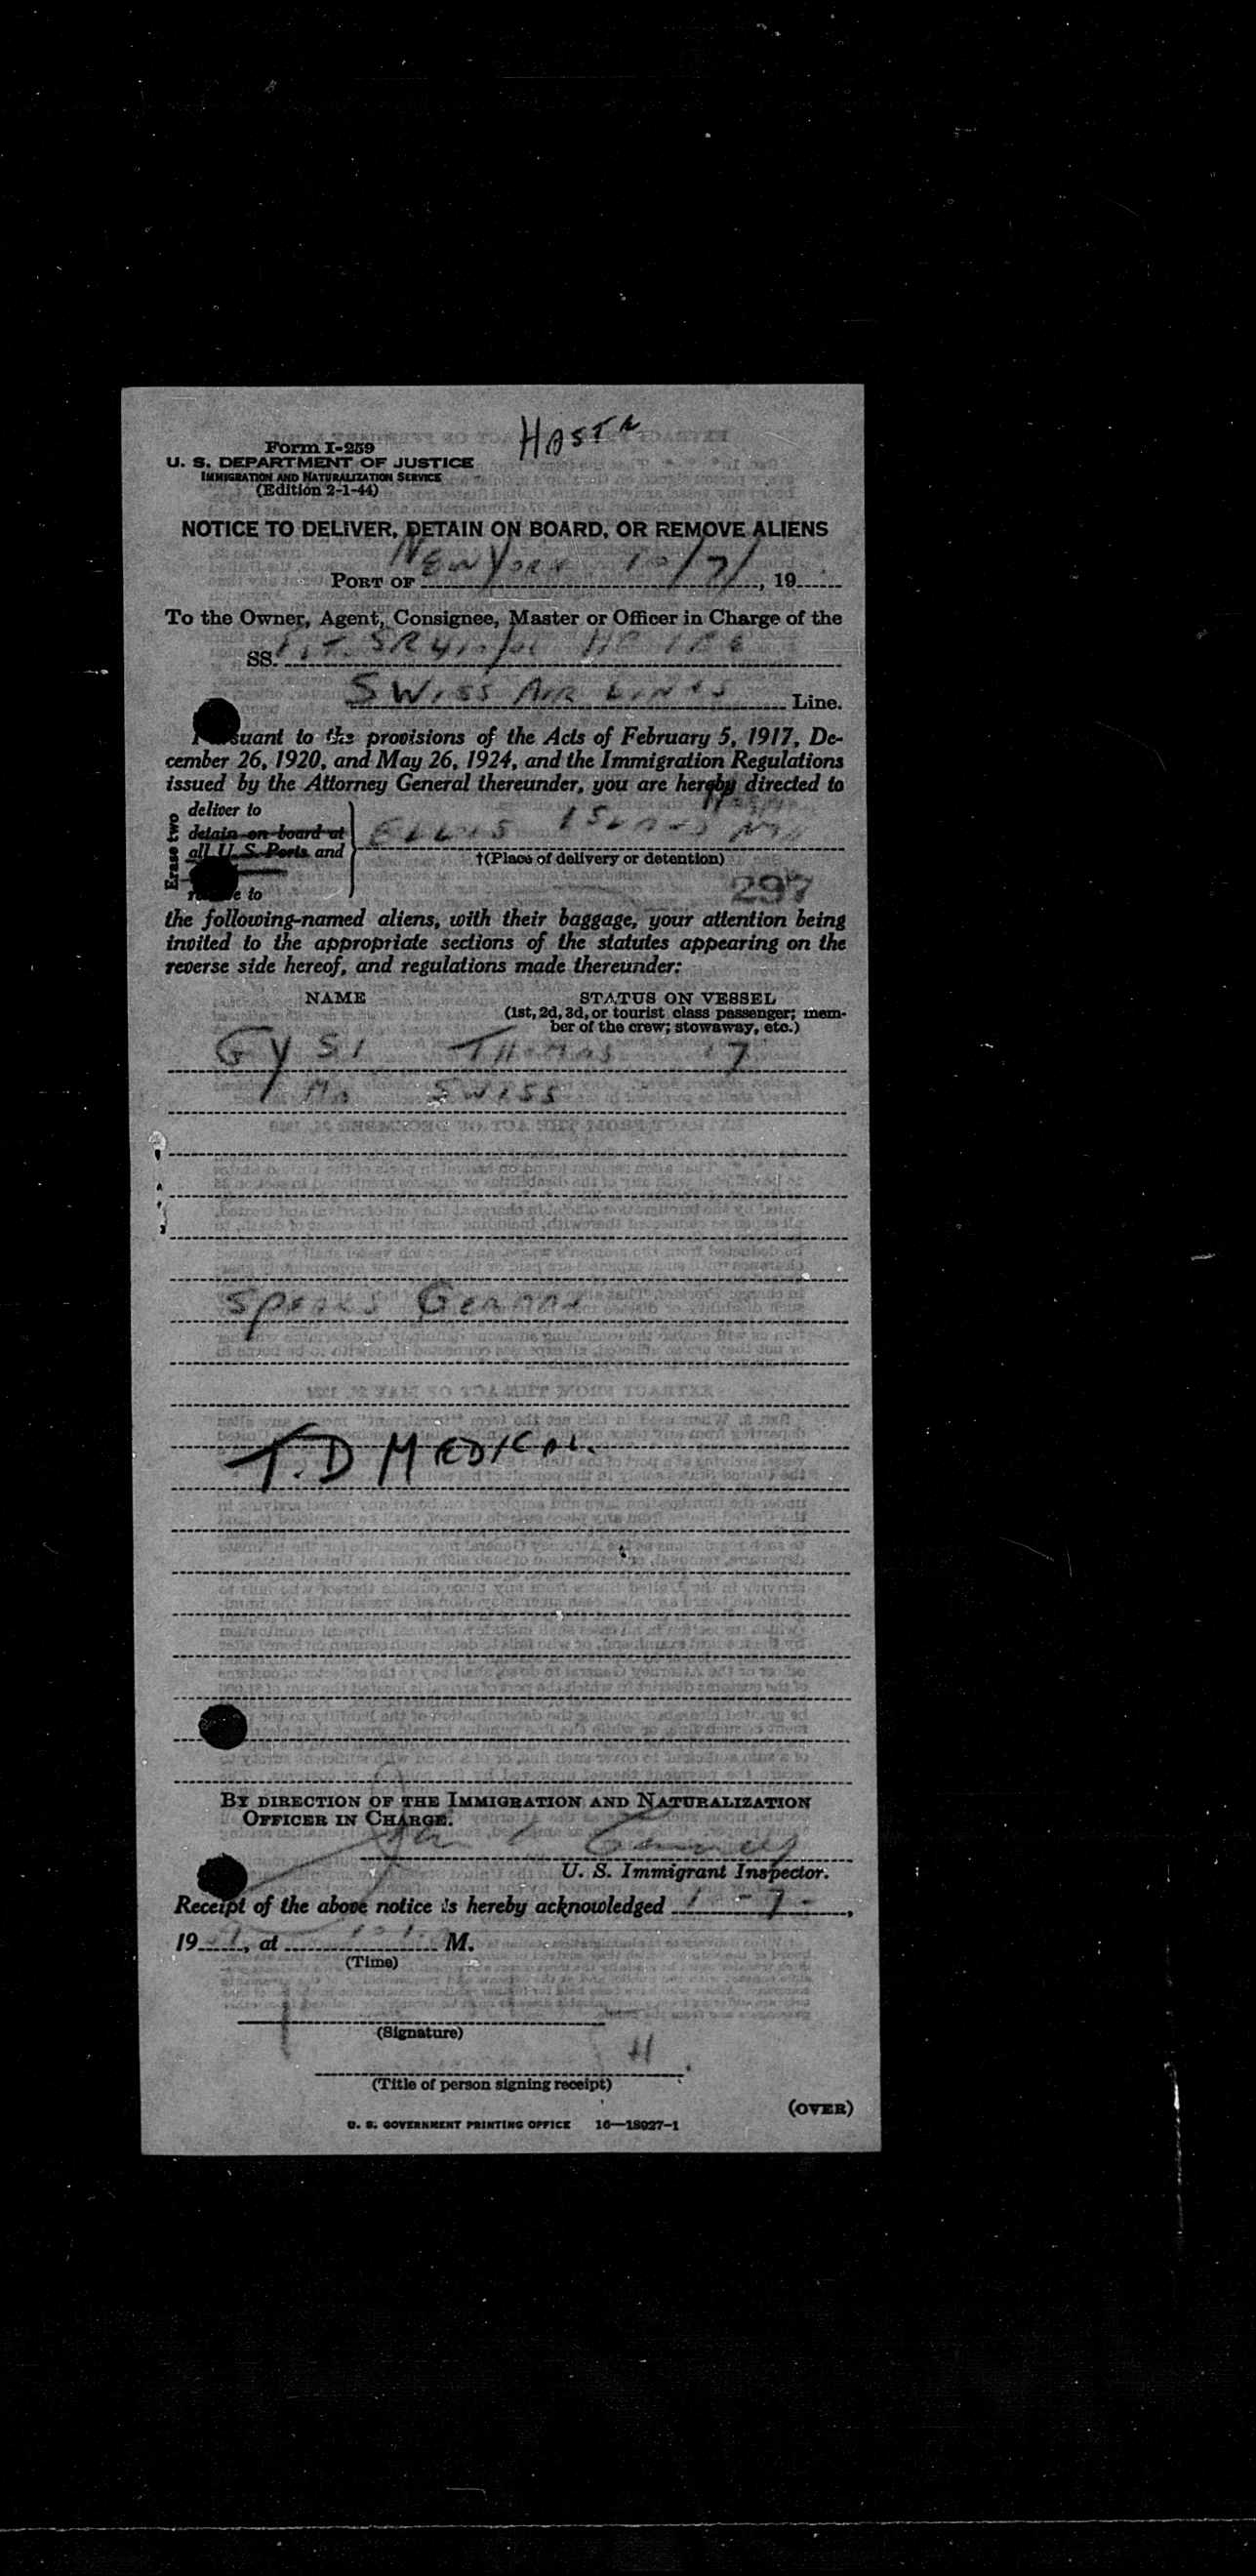 HOSTN
Form I-259
U. S. DEPARTMENT OF JUSTICE
IMMIGRATION AND NATURALIZATION SERVICE
(Edition 2-1-44)
NOTICE TO DELIVER, DETAIN ON BOARD, OR REMOVE ALIENS
PORT OF NEW YORK 10/7/, 19
To the Owner, Agent, Consignee, Master or Officer in Charge of the
SS.
SWISS AIR LINES Line.
suant to the provisions of the Acts of February 5, 1917, De-
cember 26, 1920, and May 26, 1924, and the Immigration Regulations
issued by the Attorney General thereunder, you are hereby directed to
Erase two
deliver to
detain on board at ELLIS ISLAND
all U. S. Ports and
†(Place of delivery or detention)
e to
297
the following-named aliens, with their baggage, your attention being
invited to the appropriate sections of the statutes appearing on the
reverse side hereof, and regulations made thereunder:
NAME STATUS ON VESSEL
(1st, 2d, 3d, or tourist class passenger; mem-
ber of the crew; stowaway, etc.)
GYSI THOMAS 17
SWISS
SPEAKS GERMAN
T.D MEDICAL.
BY DIRECTION OF THE IMMIGRATION AND NATURALIZATION
OFFICER IN CHARGE.
U. S. Immigrant Inspector.
Receipt of the above notice is hereby acknowledged
19, at M.
(Time)
(Signature)
H
(Title of person signing receipt)
(OVER)
U. S. GOVERNMENT PRINTING OFFICE 16—18927-1